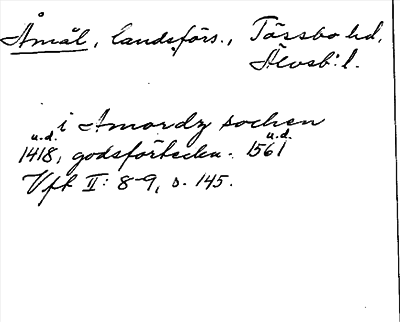 Åmål, landsförs., Tössbo hd,
Älvsb: l.
i Amordz sochen
u.d. u.d.
1418, godsförteckn. 1561
Vft II: 8-9, s. 145.